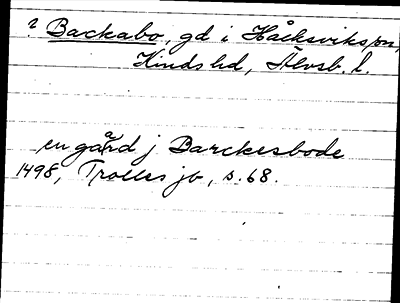 ? Backabo, gd i Håcksviks sn,
Kinds hd, Älvsb. l.
en gård j Barckesbode
1498, Trolles jb, s. 68.